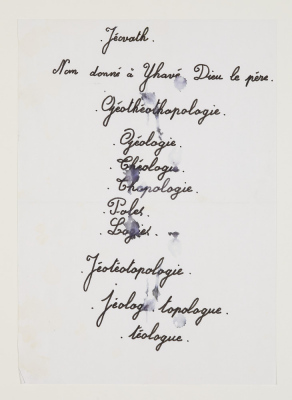 . Jéovath .
Nom donné à Yhavé Dieu le père .
. Géothéothopologie .
. Géologie .
. Théologie .
. Thopologie .
. Poles .
. Logies .
. Jéotéotopologie .
. jéolog . topologue .
. téologue .